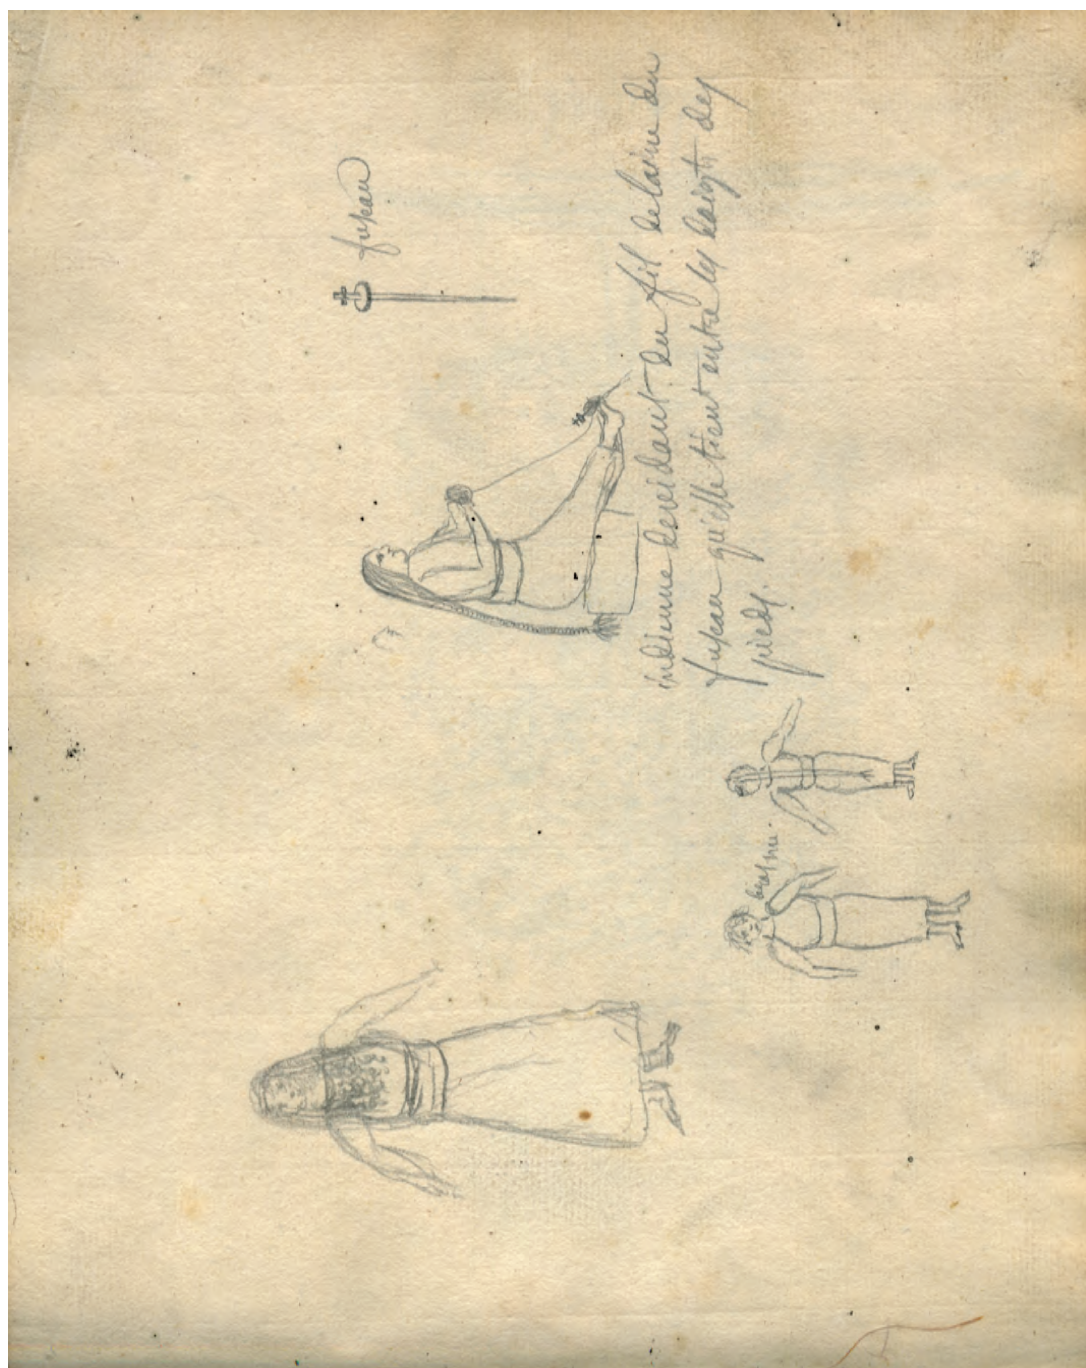 fuseau
indienne devidant du fil de laine du
fuseau qu'elle tient entre les doigts des
pieds.